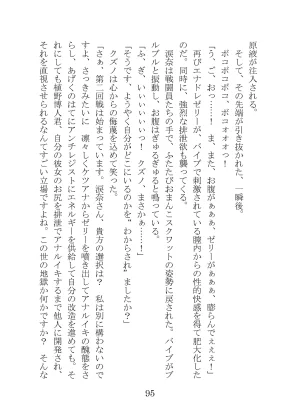 原液が注入される。
そして、その先端が引き抜かれた。一瞬後。
ボコボコボコ、ボコォオオっ！
「う、ご、おっ……！　ま、また、お腹がぁぁぁ、ゼリーがぁぁぁ、膨らんでえぇぇ！」
再びエナドレゼリーが、バイブで刺激されている膣内からの性的快感を得て肥大化した。同時に、強烈な排泄欲も襲ってくる。
涙奈は戦闘員たちの手で、ふたたびおまんこスクワットの姿勢に戻された。バイブがブルブルと振動し、お腹はぎゅるぎゅると鳴っている。
「ふ、ぎ、いぃいぃいっ！　クズノ、まさかぁ……！」
「そうです。ようやく自分がどこにいるのかを、わからされ、ましたか？」
クズノは心からの侮蔑を込めて笑った。
「さぁ、第二回戦は始まっています。涙奈さん、貴方の選択は？　私は別に構わないのですよ、さっきみたいに　凛々しくケツアナからゼリーを噴き出してアナルイキの醜態をさらし、あげくのはてにアンチレジストにエネルギーを供給して自分の改造を進めても。それにしても植野博人君、自分の彼女のお尻を排泄でアナルイキするまで他人に開発され、それを直視させられるなんてすごい立場ですよね。この世の地獄か何かですか？　そんな
95